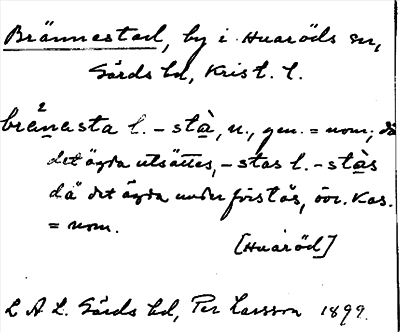 Brännestad, by i Huaröds sn,
Gärds hd, Krist. l.
brånasta l. -stà, n., gen. = nom; då
det ägda utsättes, -stas l. -stàs
då det ägda underförstås, öv. Kas.
= nom.
[Huaröd]
L A L. Gärds hd, Per Larsson 1899.